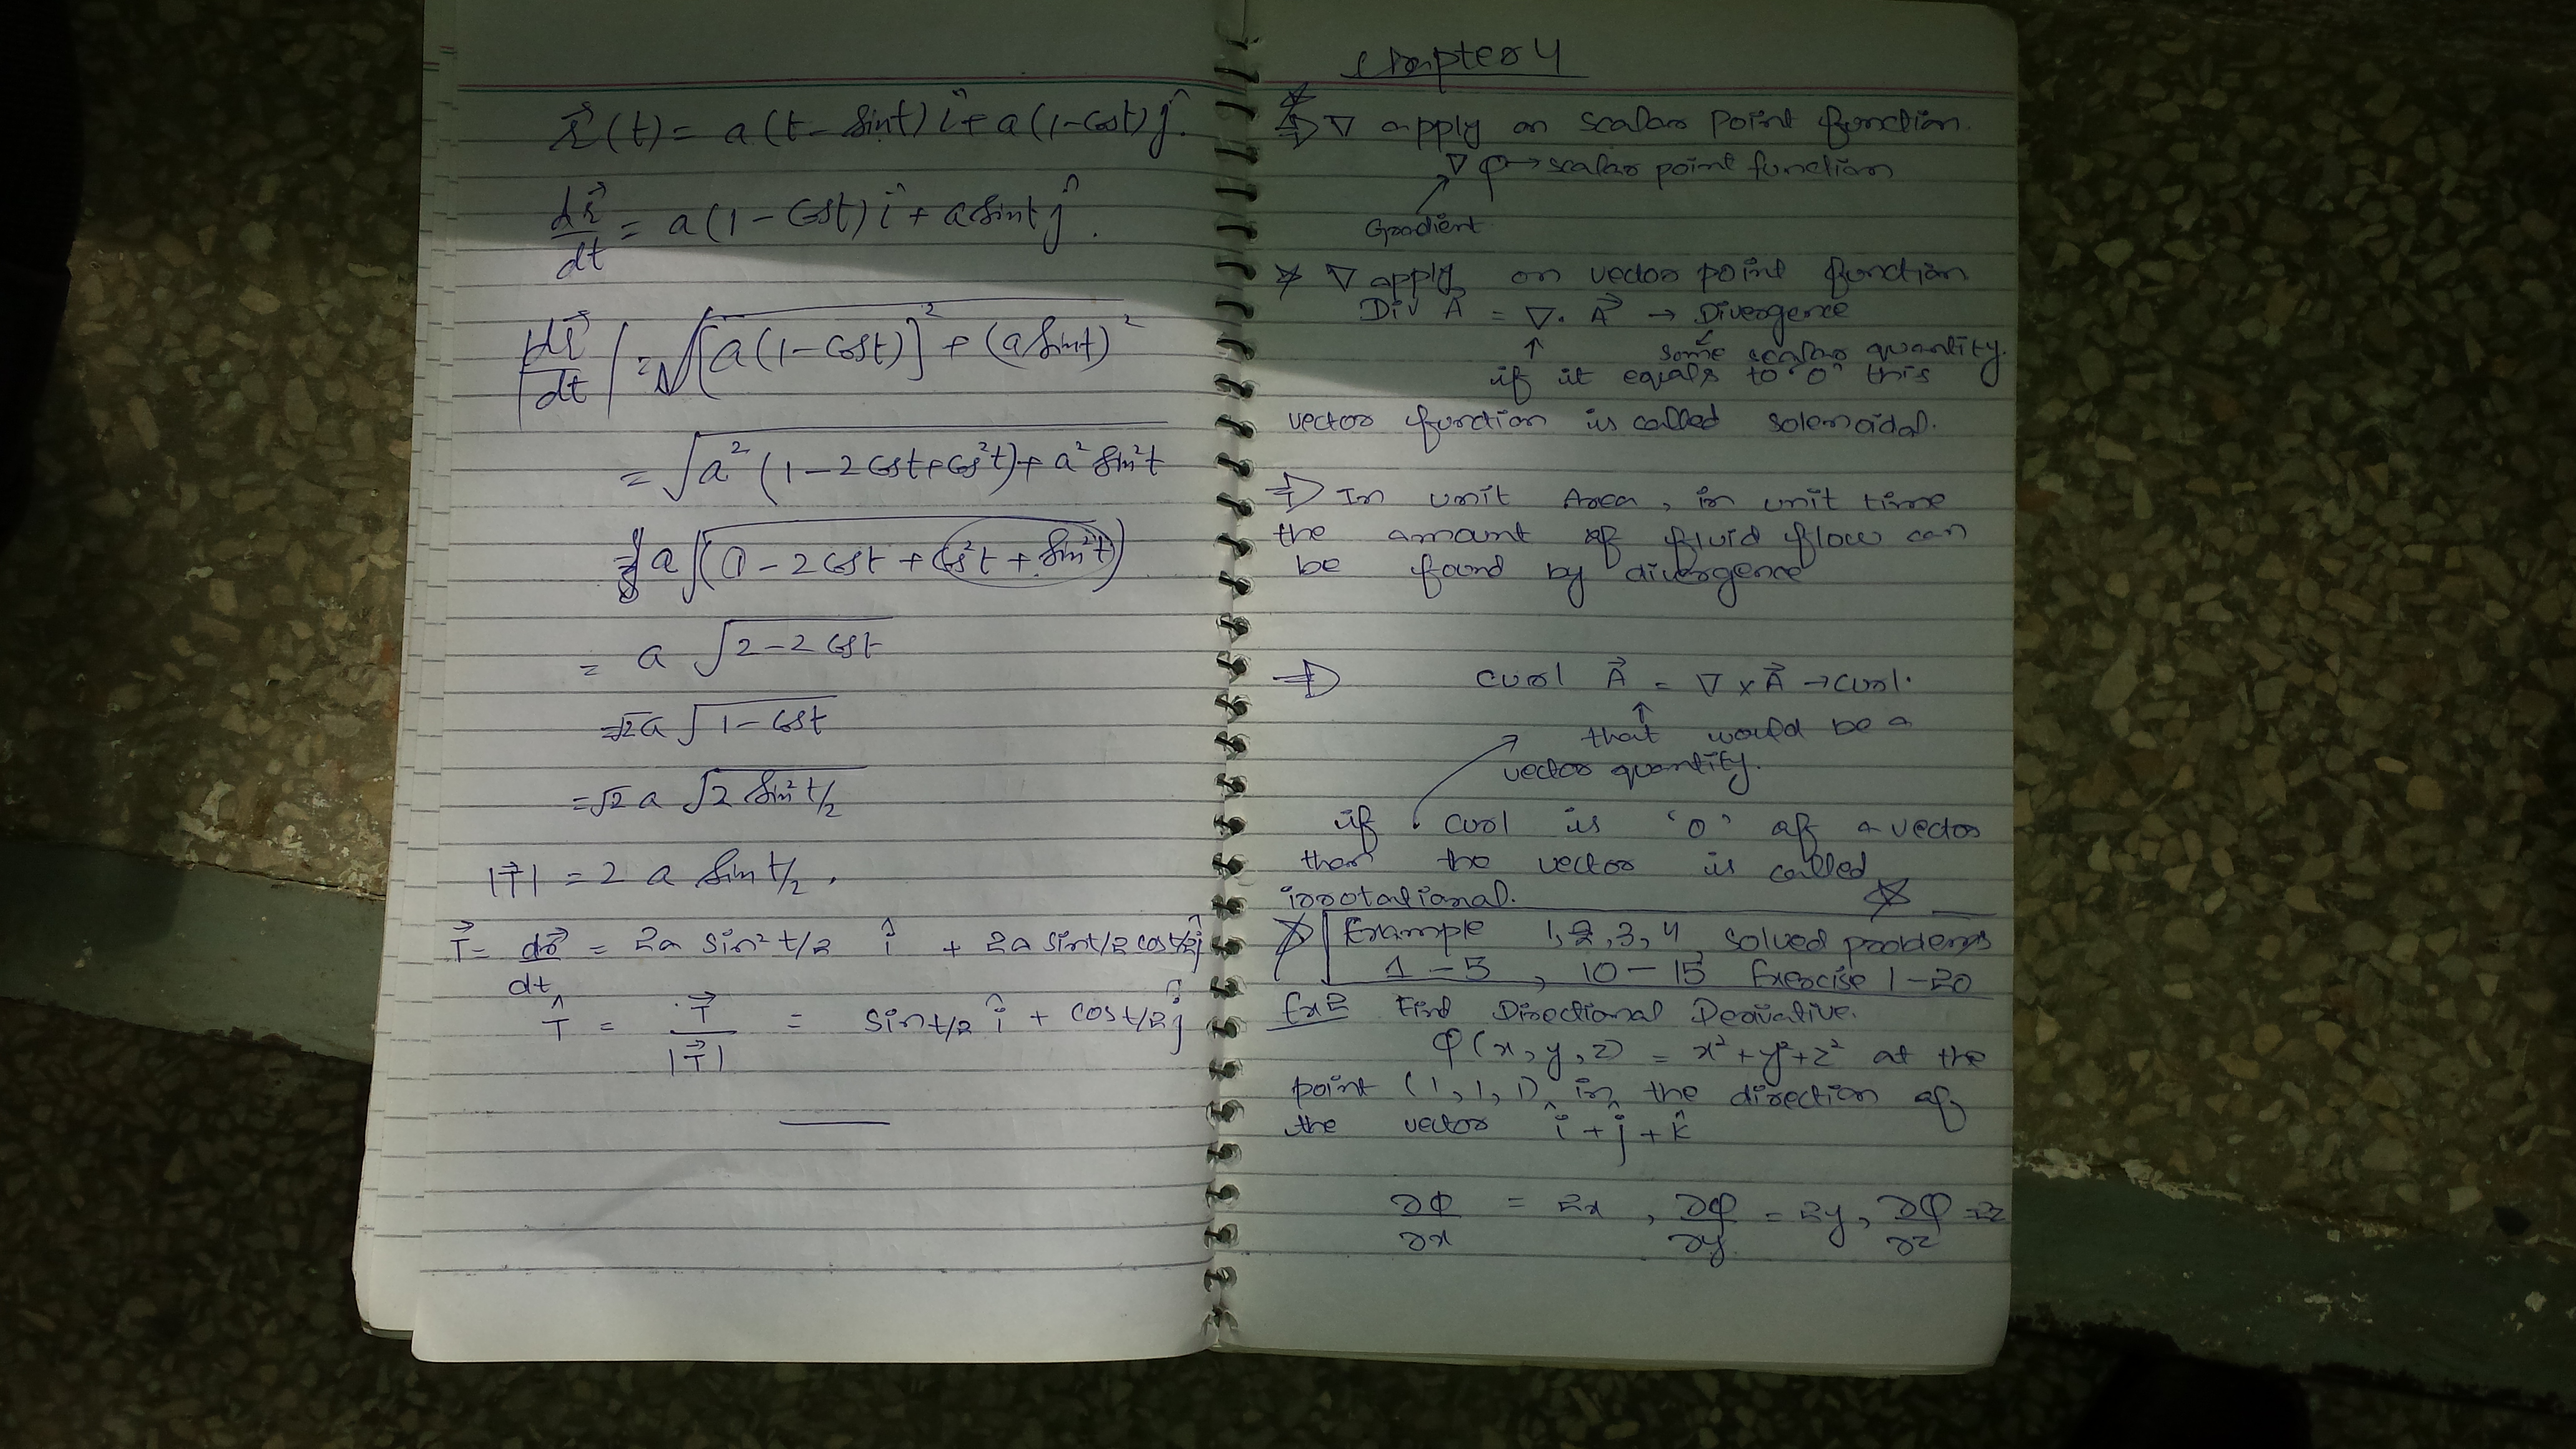 r⃗(t) = a(t - Sint) î + a(1-Cost) ĵ.
dr⃗/dt = a(1 - Cost) î + a Sint ĵ.
|dr⃗/dt| = √[a(1-Cost)]² + (a Sint)²
= √a² (1-2Cost+Cos²t) + a² Sin²t
= a √(1 - 2Cost + Cos²t + Sin²t)
= a √2-2Cost
= √2 a √1-Cost
= √2 a √2 Sin² t/2
|T⃗| = 2 a Sin t/2.
T⃗ = dr⃗/dt = 2a sin² t/2 î + 2a sint/2 cost/2 ĵ
T̂ = T⃗/|T⃗| = sint/2 î + cost/2 ĵ
Chapter 4
⇒ ∇ apply on scalar point function.
∇ φ → scalar point function
Gradient
* ∇ apply on vector point function
Div A⃗ = ∇. A⃗ → Divergence
↑ some scalar quantity.
if it equals to '0' this
vector function is called solenoidal.
⇒ In unit Area, in unit time
the amount of fluid flow can
be found by divergence
⇒ curl A⃗ = ∇ × A⃗ → curl.
↑
that would be a
vector quantity.
if curl is '0' of a vector
then the vector is called
irrotational.
Example 1, 2, 3, 4 solved problems
1 - 5, 10 - 15 Exercise 1-20
Ex2 Find Directional Derivative.
φ(x, y, z) = x² + y² + z² at the
point (1, 1, 1) in the direction of
the vector î + ĵ + k̂
∂φ/∂x = 2x, ∂φ/∂y = 2y, ∂φ/∂z = 2z